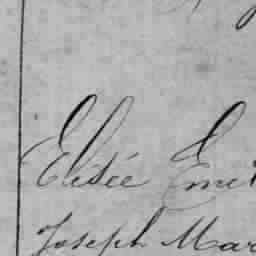 Elisée Emi
Joseph Mar